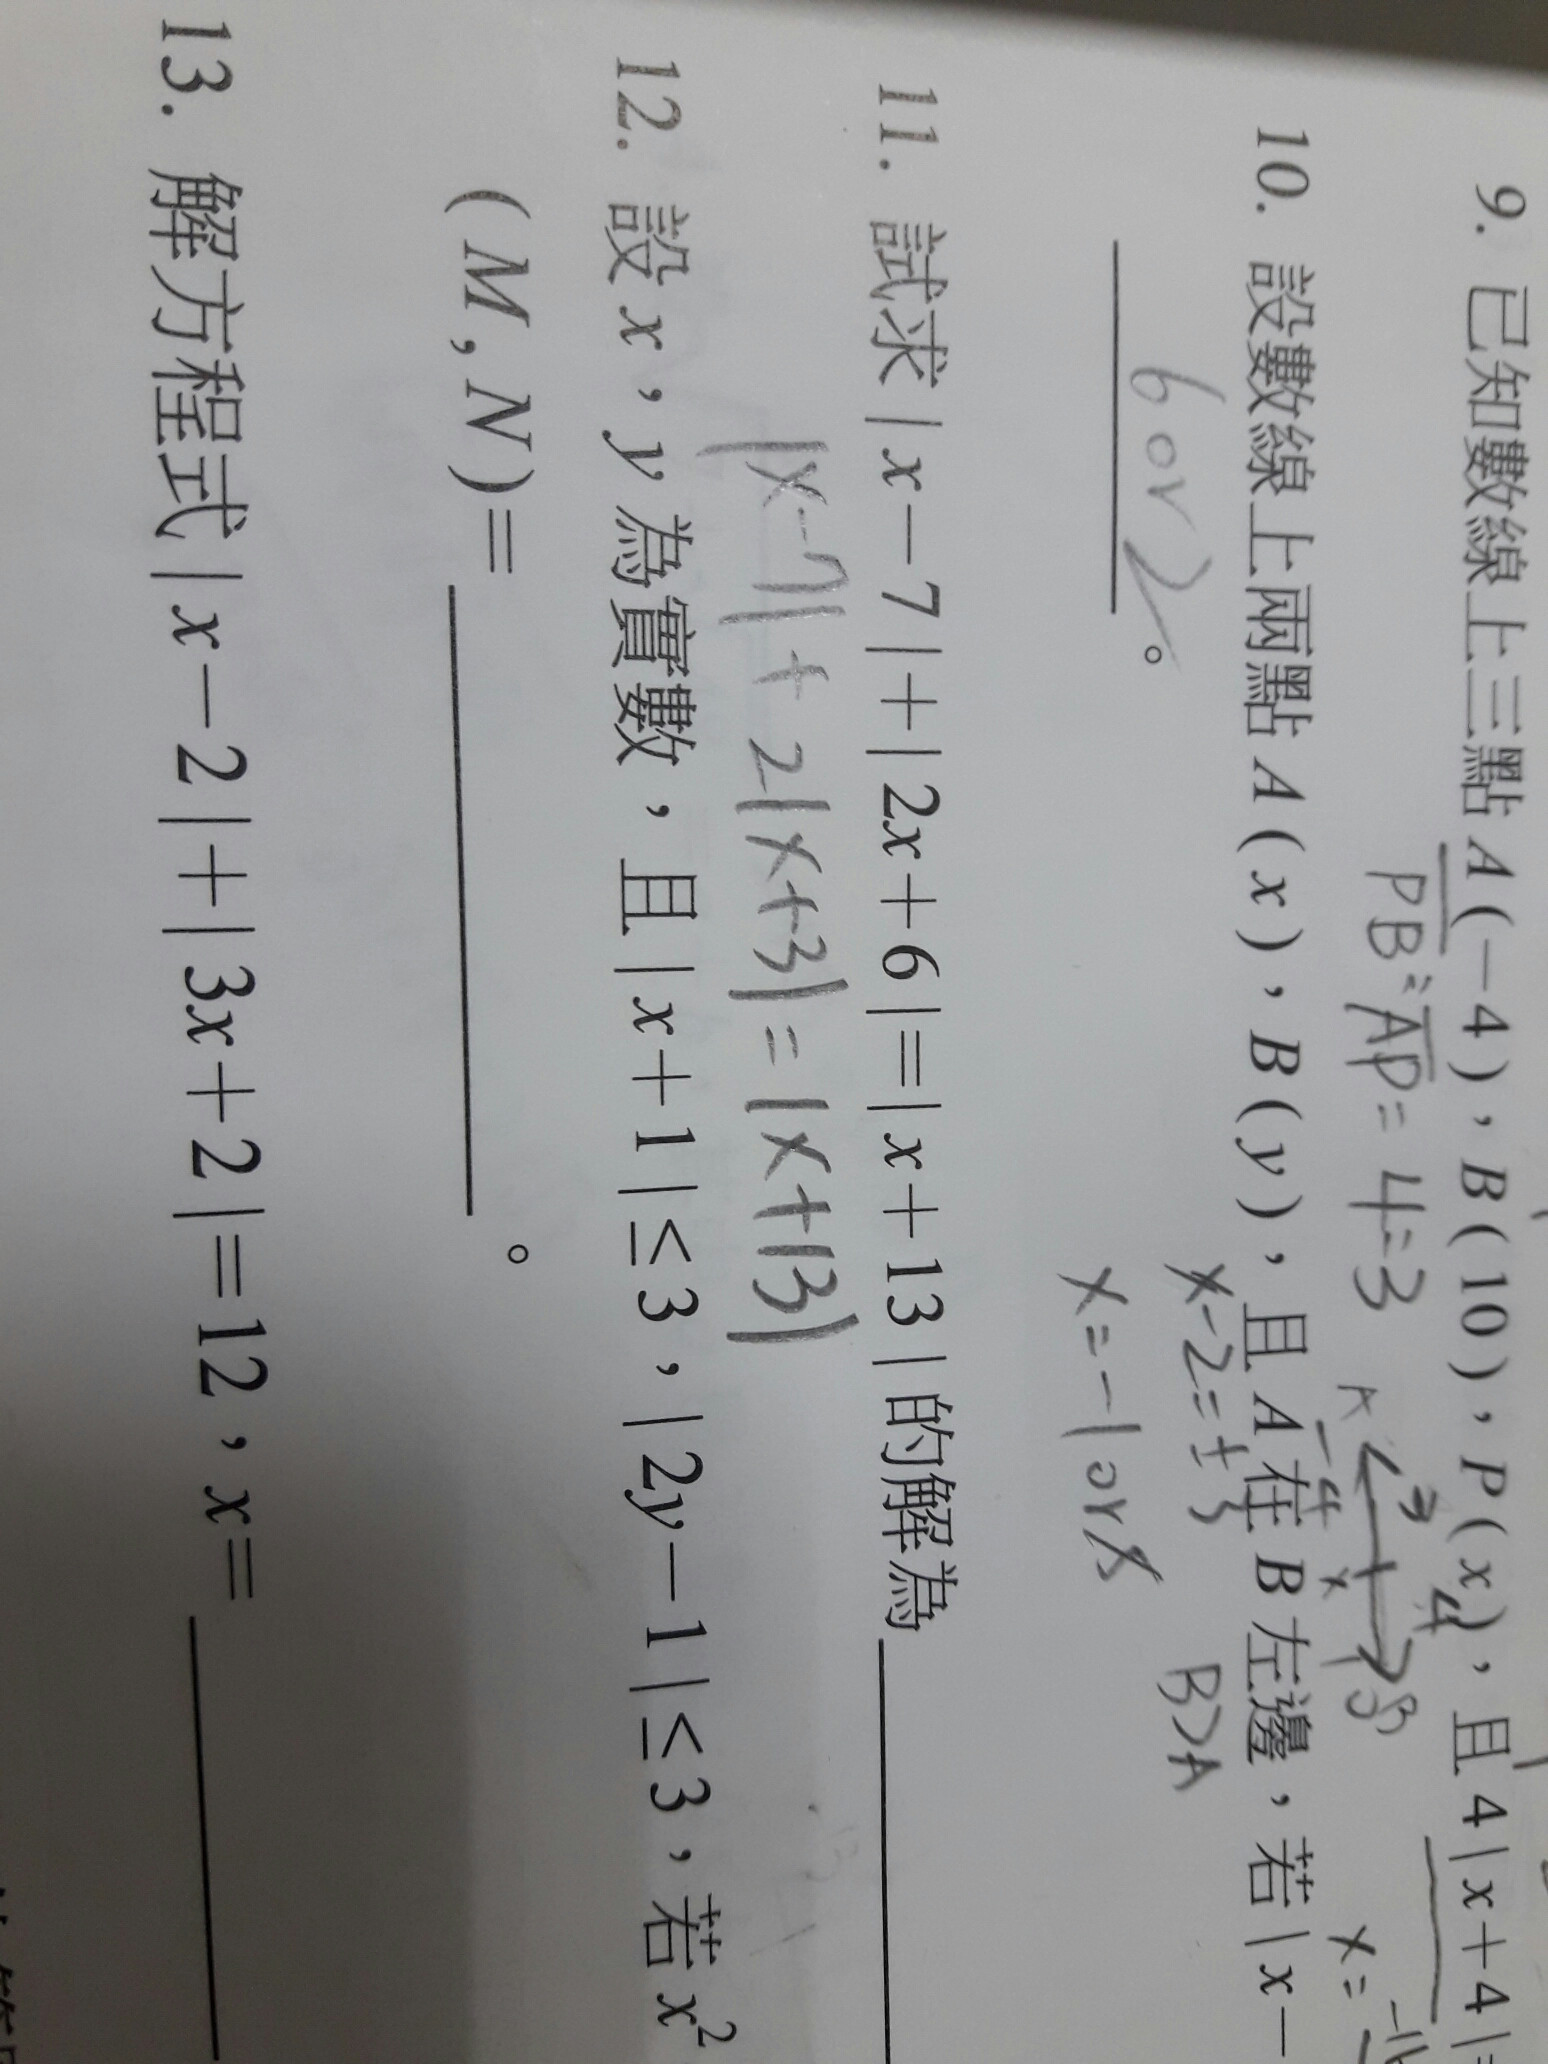 9. 已知數線上三點 A(-4), B(10), P(x), 且 4|x+4|=
PB:AP=4:3
A -4 3 x 4 B
x=
10. 設數線上兩點 A(x), B(y), 且 A 在 B 左邊, 若|x-
x-2=±3 B>A
6 or 2 。
x=-1 or 5
11. 試求|x-7|+|2x+6|=|x+13|的解為
|x-7|+2|x+3|=|x+13|
12. 設 x, y 為實數, 且|x+1|≤3, |2y-1|≤3, 若 x²
(M, N)= 。
13. 解方程式|x-2|+|3x+2|=12, x=